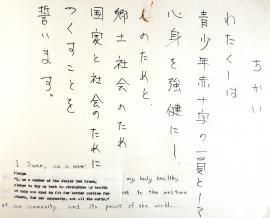 ちかい
わたくしは
青少年赤十字の一員として
心身を強健にし、
人のためと、
郷土社会のため
国家と社会のために
つくすことを
誓います。
I Swear, as a
my body healthy
to the welfare
our community, and its peace of the world.
Pledge
"I, as a member of the Junior Red Cross,
pledge to try my best to strengthen my health
of body and mind to fit for better service for
others, for our community, and all the world."